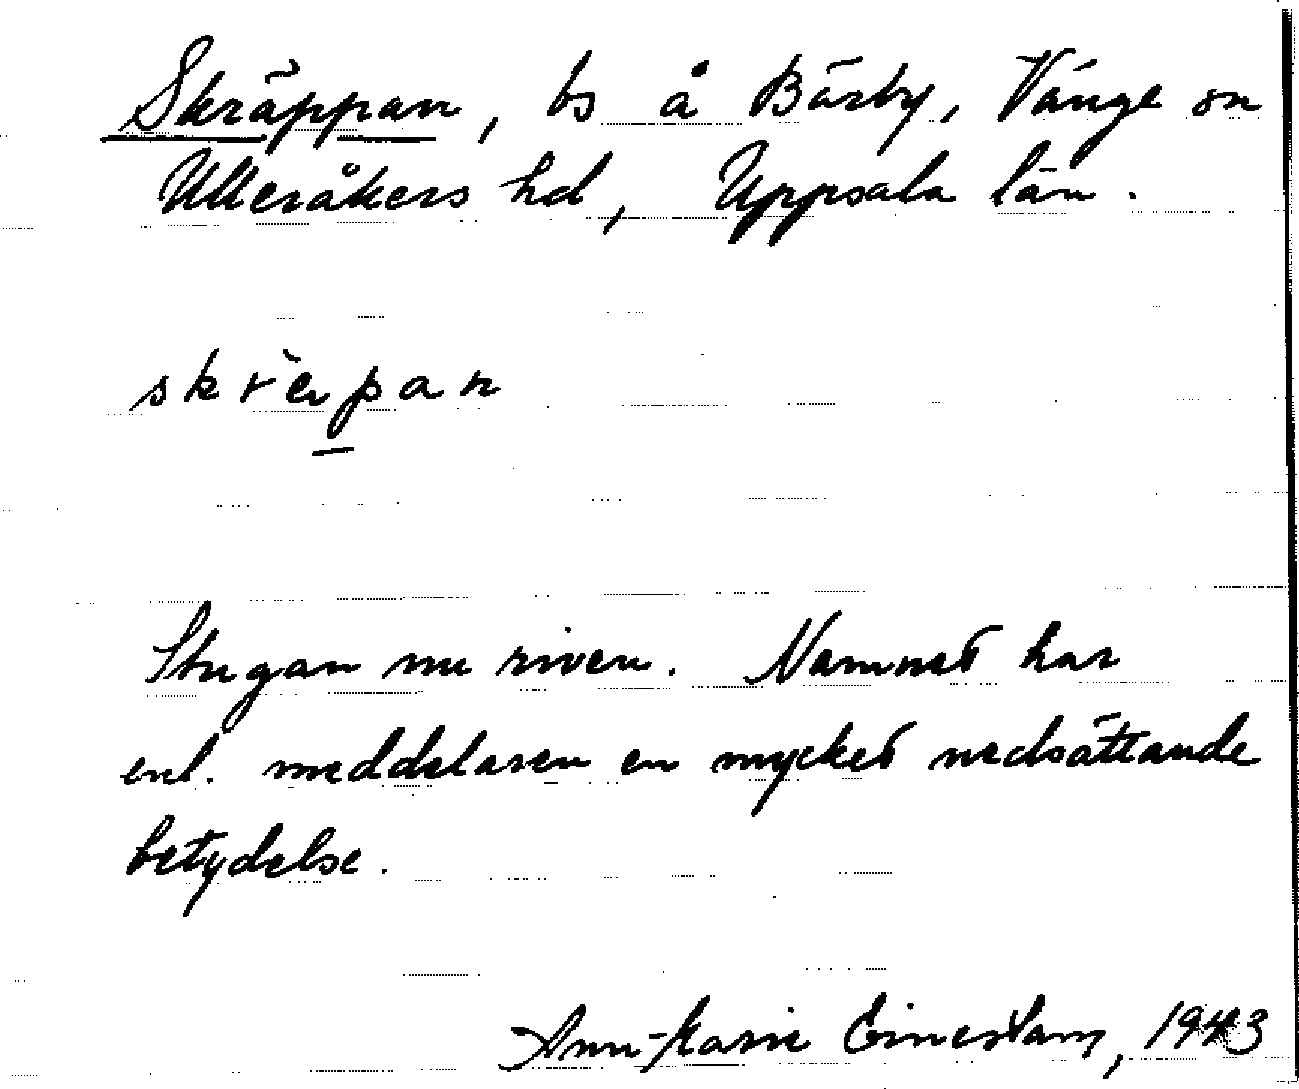 Skräppan, bs å Bärby, Vänge sn
Ulleråkers hd, Uppsala län.
skrèpan
Stugan nu riven. Namnet har
enl. meddelaren en mycket nedsättande
betydelse.
Ann-Marie 1943